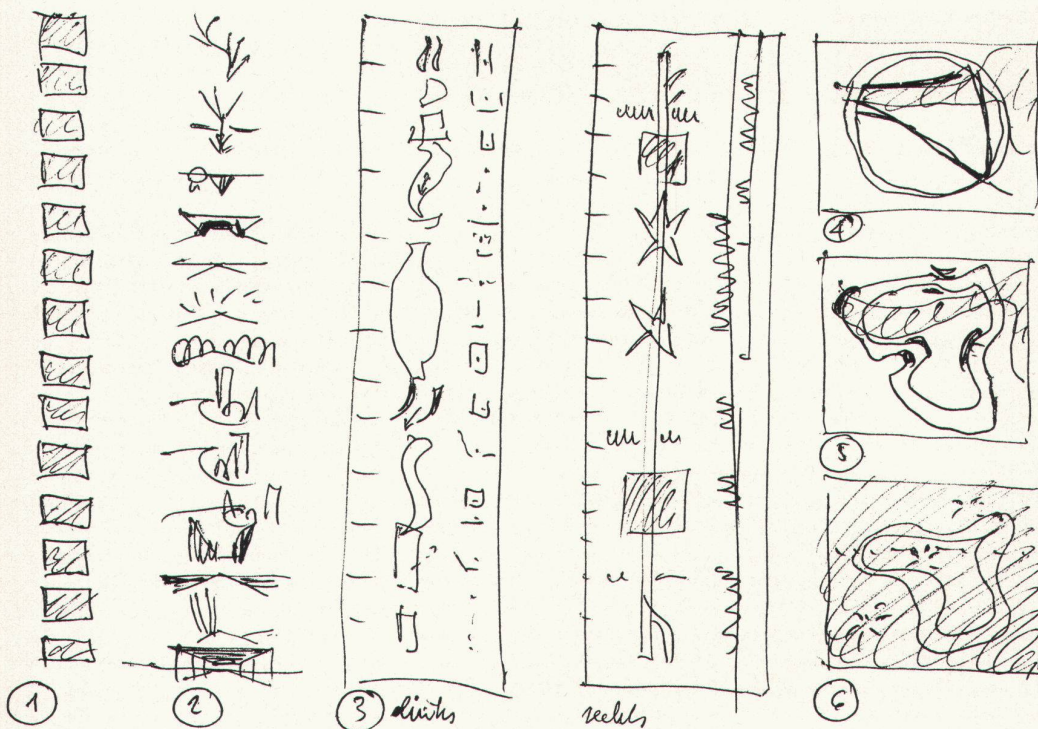 4
5
1 2 3 links rechts 6